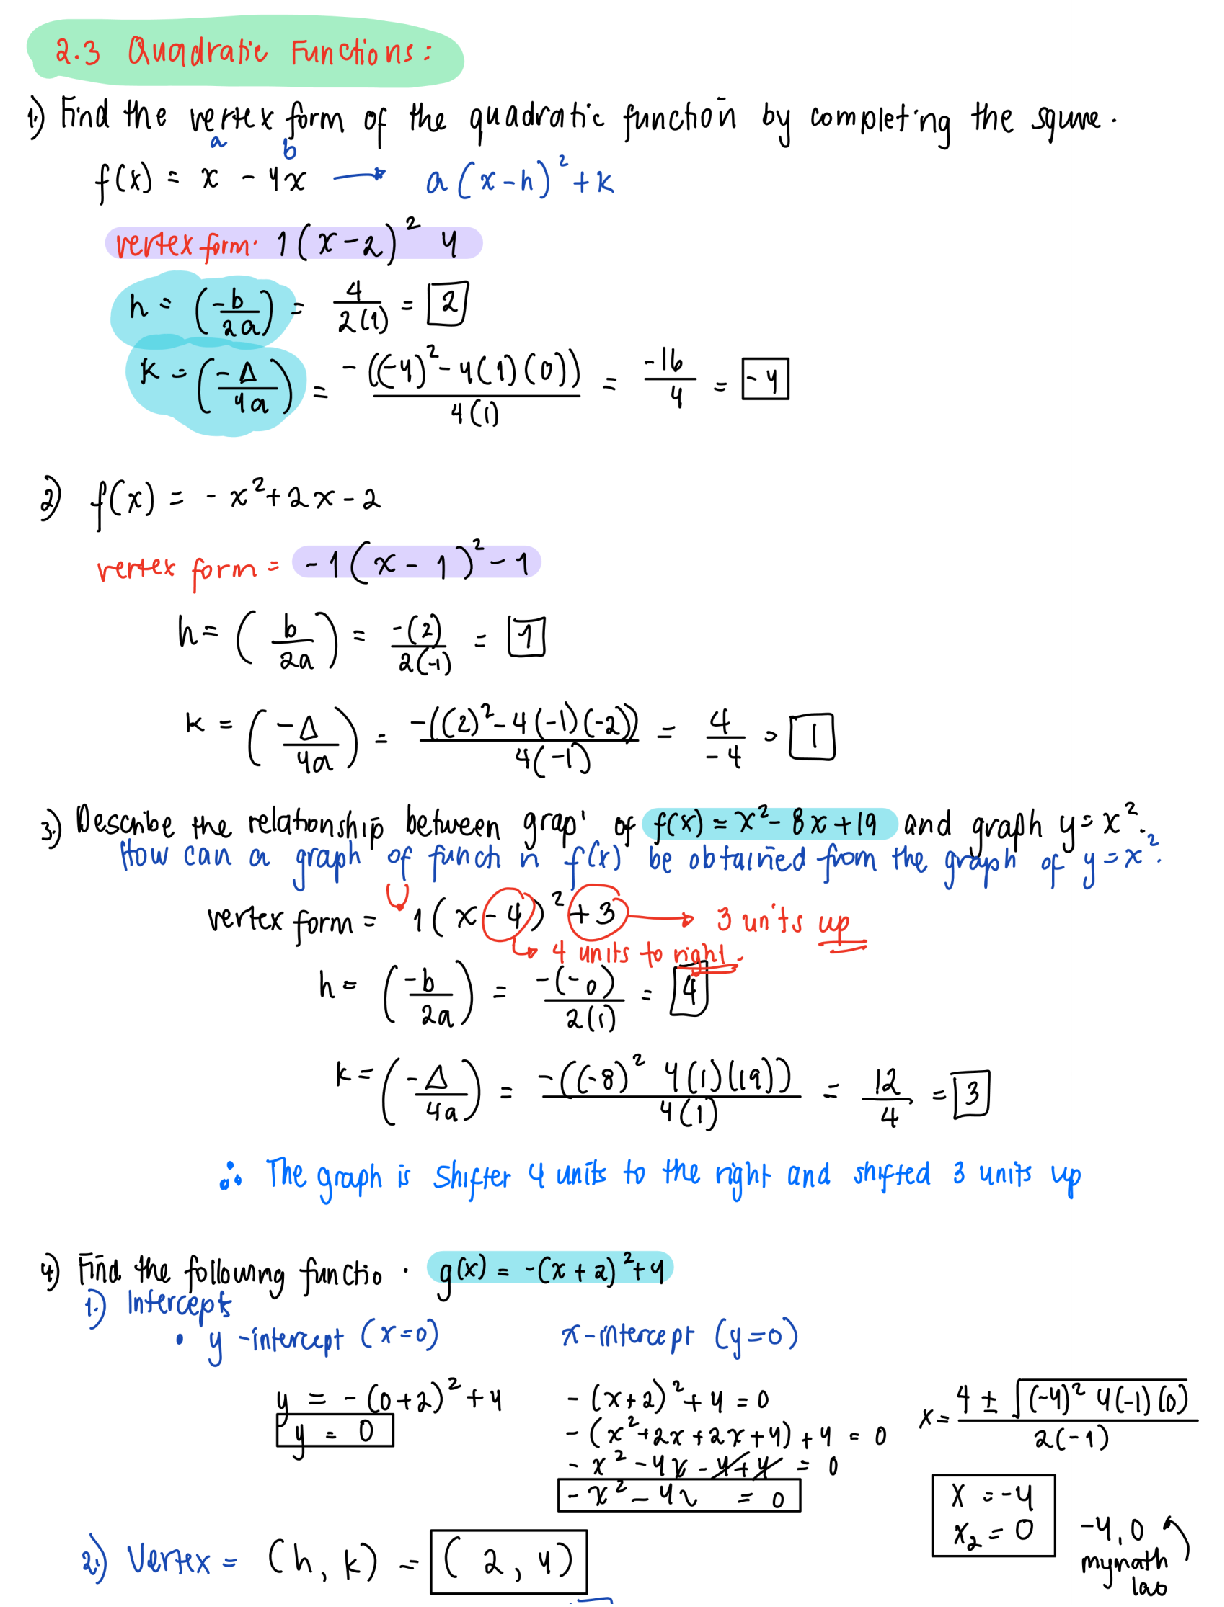 2.3 Quadratic Functions:
1.) Find the vertex form of the quadratic function by completing the square.
a b
f(x) = x - 4x → a(x-h)² + k
vertex form: 1(x-2)² 4
h = (-b/2a) = 4/2(1) = 2
k = (-Δ/4a) = -((-4)² - 4(1)(0))/4(1) = -16/4 = -4
2) f(x) = -x² + 2x - 2
vertex form = -1(x - 1)² - 1
h = (b/2a) = -(2)/2(-1) = 1
k = (-Δ/4a) = -((2)² - 4(-1)(-2))/4(-1) = 4/-4 = 1
3.) Describe the relationship between grap of f(x) = x² - 8x + 19 and graph y = x².
How can a graph of funct n f(x) be obtained from the graph of y = x².
vertex form = 1(x - 4)² + 3 → 3 units up
→ 4 units to right.
h = (-b/2a) = -(-0)/2(1) = 4
k = (-Δ/4a) = -((-8)² 4(1)(19))/4(1) = 12/4 = 3
∴ The graph is shifter 4 units to the right and shifted 3 units up
4) Find the following functio . g(x) = -(x + 2)² + 4
1.) Intercepts
• y-intercept (x=0) x-intercept (y=0)
y = -(0+2)² + 4 -(x+2)² + 4 = 0 x = 4 ± √(-4)² 4(-1)(0)/2(-1)
y = 0 -(x² + 2x + 2x + 4) + 4 = 0
-x² - 4x - 4 + 4 = 0
-x² - 4x = 0 x = -4
x₂ = 0 -4, 0
mymath
lab
2.) Vertex = (h, k) = (2, 4)